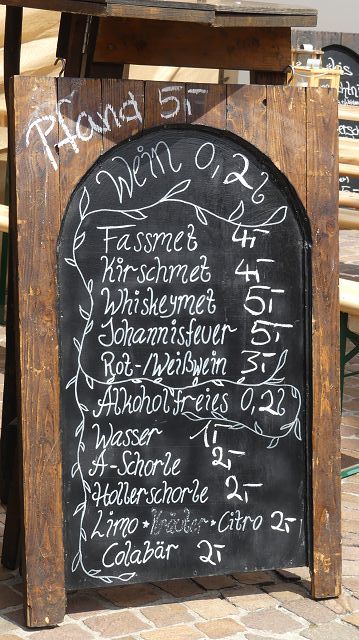 Pfand 5,-
Wein 0,2l
Fassmet 4,-
Kirschmet 4,-
Whiskeymet 5,-
Johannisfeuer 5,-
Rot-/Weißwein 3,-
Alkoholfreies 0,2l
Wasser 1,-
A-Schorle 2,-
Hollerschorle 2,-
Limo * Kräuter * Citro 2,-
Colabär 2,-